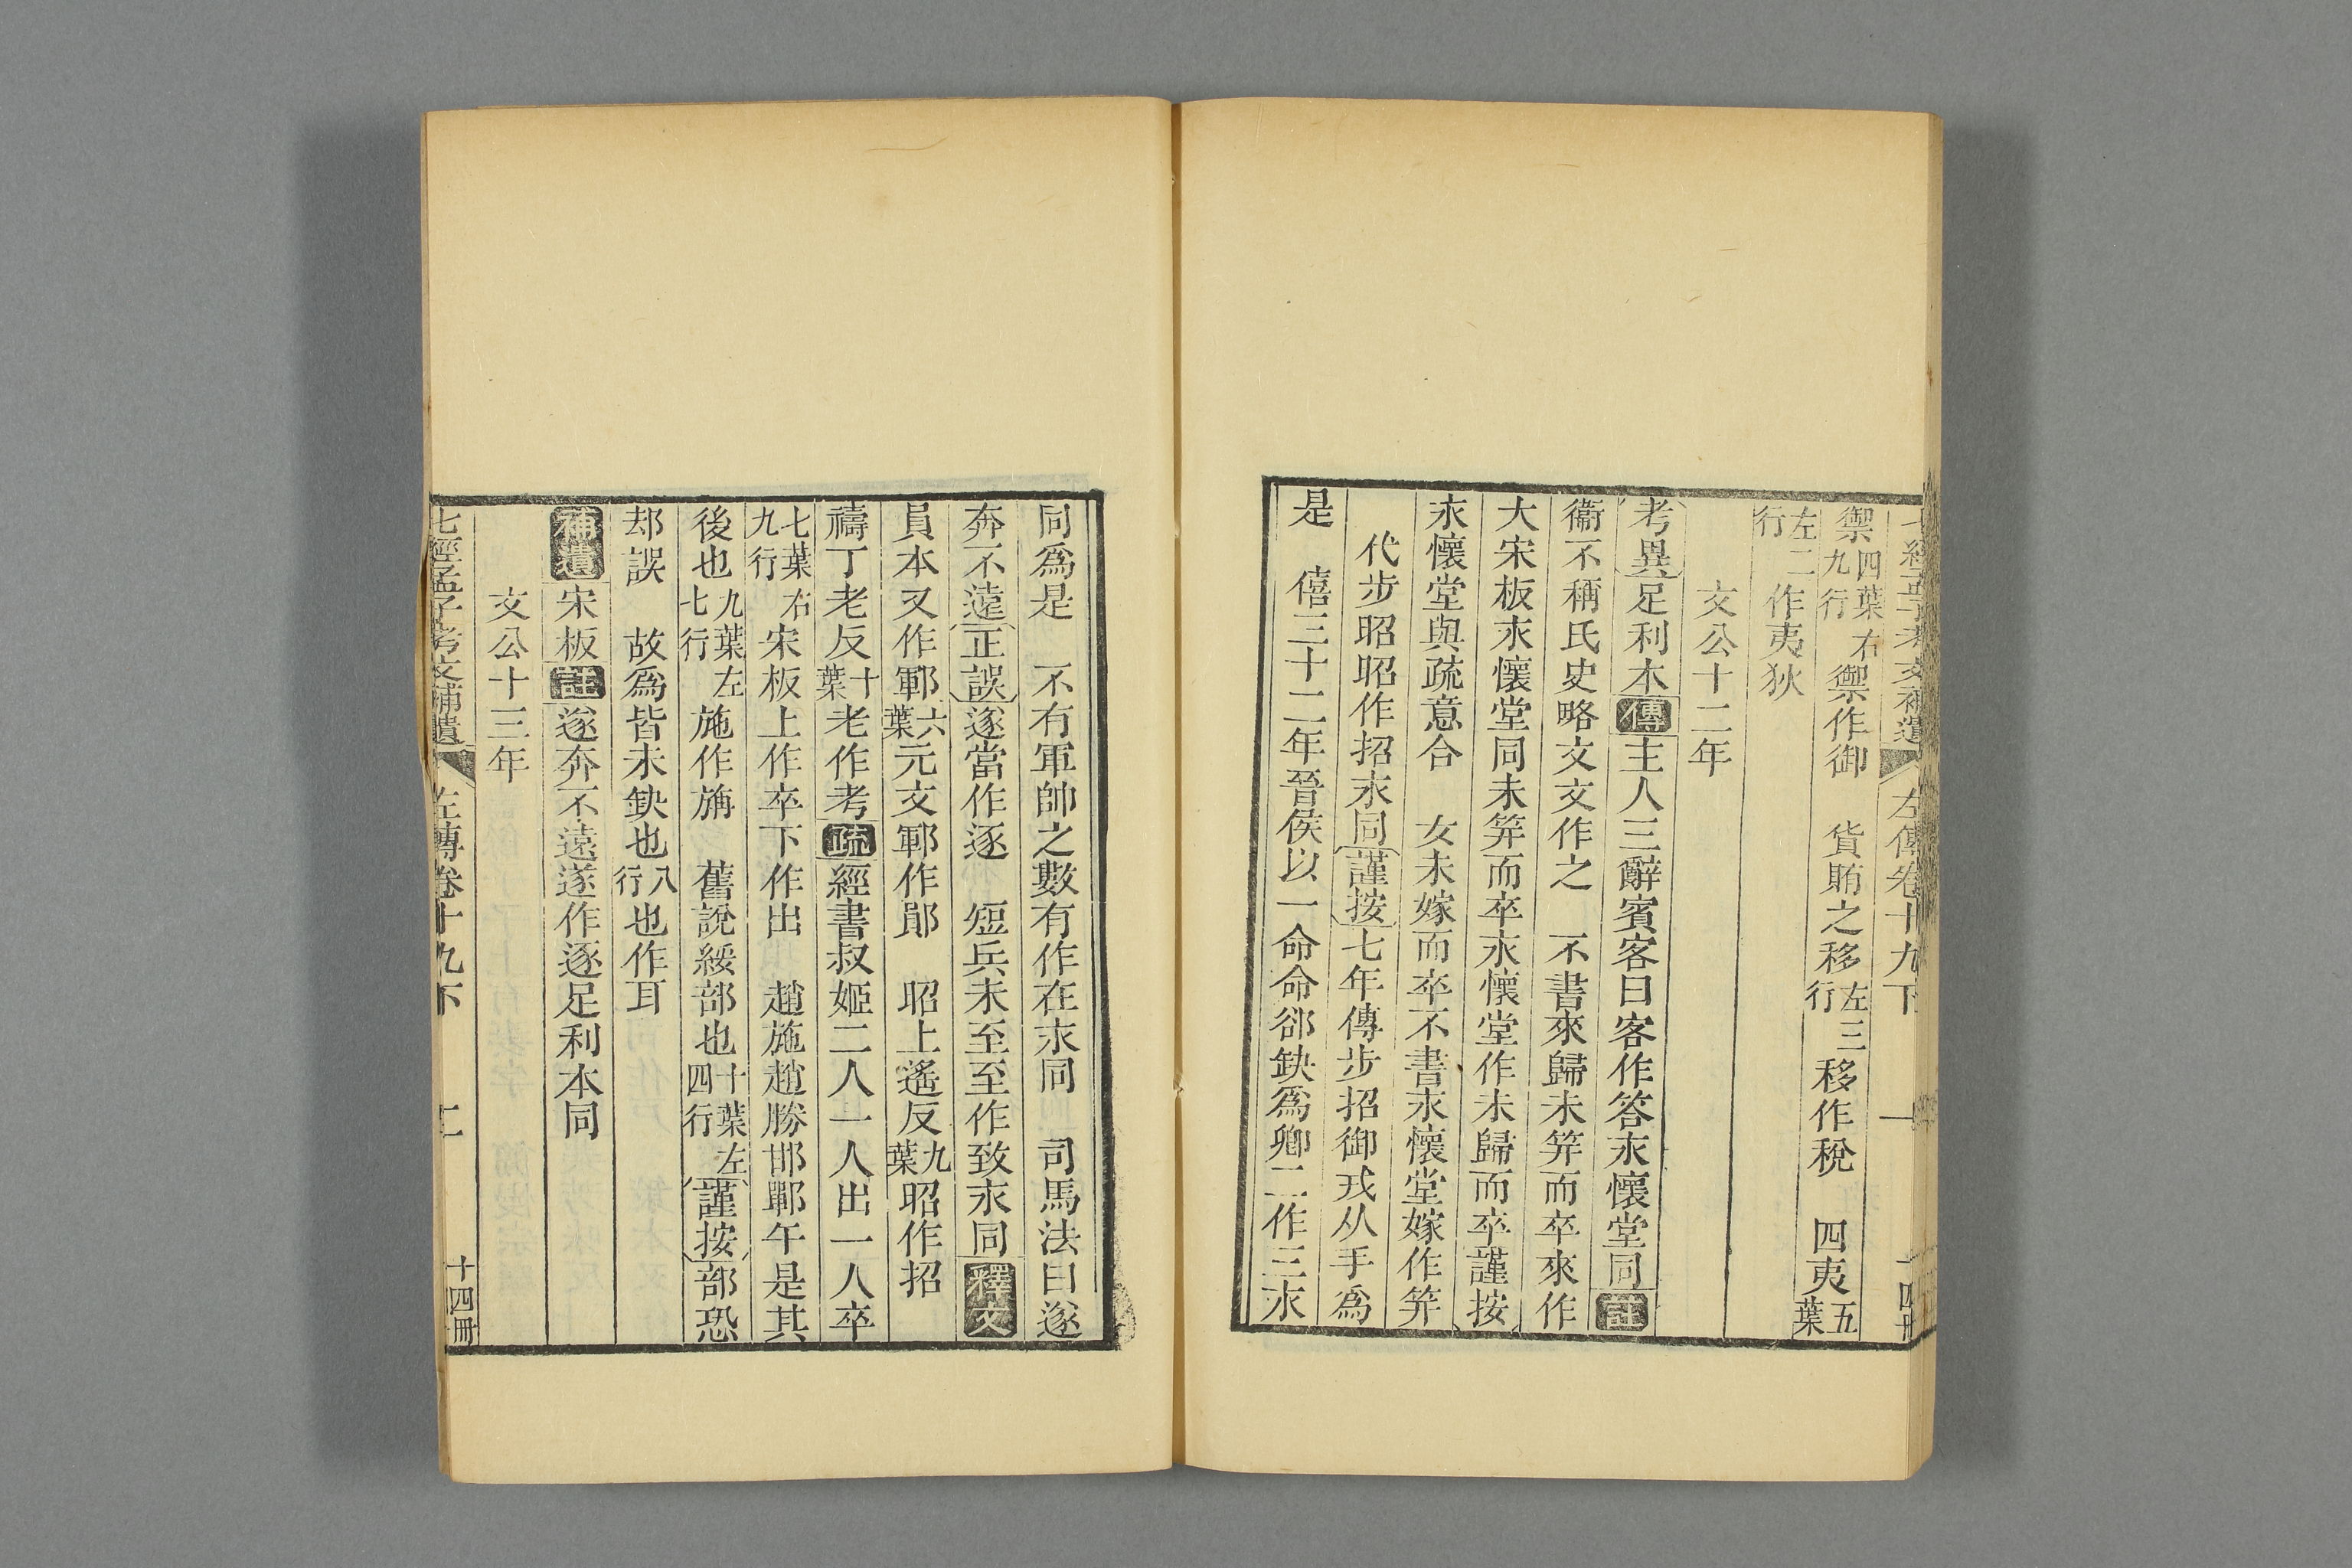 七經孟子考文補遺 左傳卷十九下 一 十四冊
禦四葉右九行禦作御 貨賄之移左三行移作稅 四夷五葉
左二行作夷狄
文公十二年
考異足利本傳主人三辭賓客曰客作答永懷堂同註
衞不稱氏史略文文作之 不書來歸未笄而卒來作
大宋板永懷堂同未笄而卒永懷堂作未歸而卒謹按
永懷堂與疏意合 女未嫁而卒不書永懷堂嫁作笄
代步昭昭作招永同謹按七年傳步招御戎从手爲
是 僖三十二年晉侯以一命命郤缺爲卿二作三永
同爲是 不有軍帥之數有作在永同 司馬法曰遂
奔不遠正誤遂當作逐 短兵未至至作致永同釋文
員本又作鄆六葉元文鄆作鄖 昭上遙反九葉昭作招
禱丁老反十葉老作考疏經書叔姬二人一人出一人卒
七葉右九行宋板上作卒下作出 趙施趙勝邯鄲午是其
後也九葉左七行施作旃 舊說綏部也十葉左四行謹按部恐
却誤 故爲皆未缺也八行也作耳
補遺宋板註遂奔不遠遂作逐足利本同
文公十三年
七經孟子考文補遺 左傳卷十九下 二 十四冊